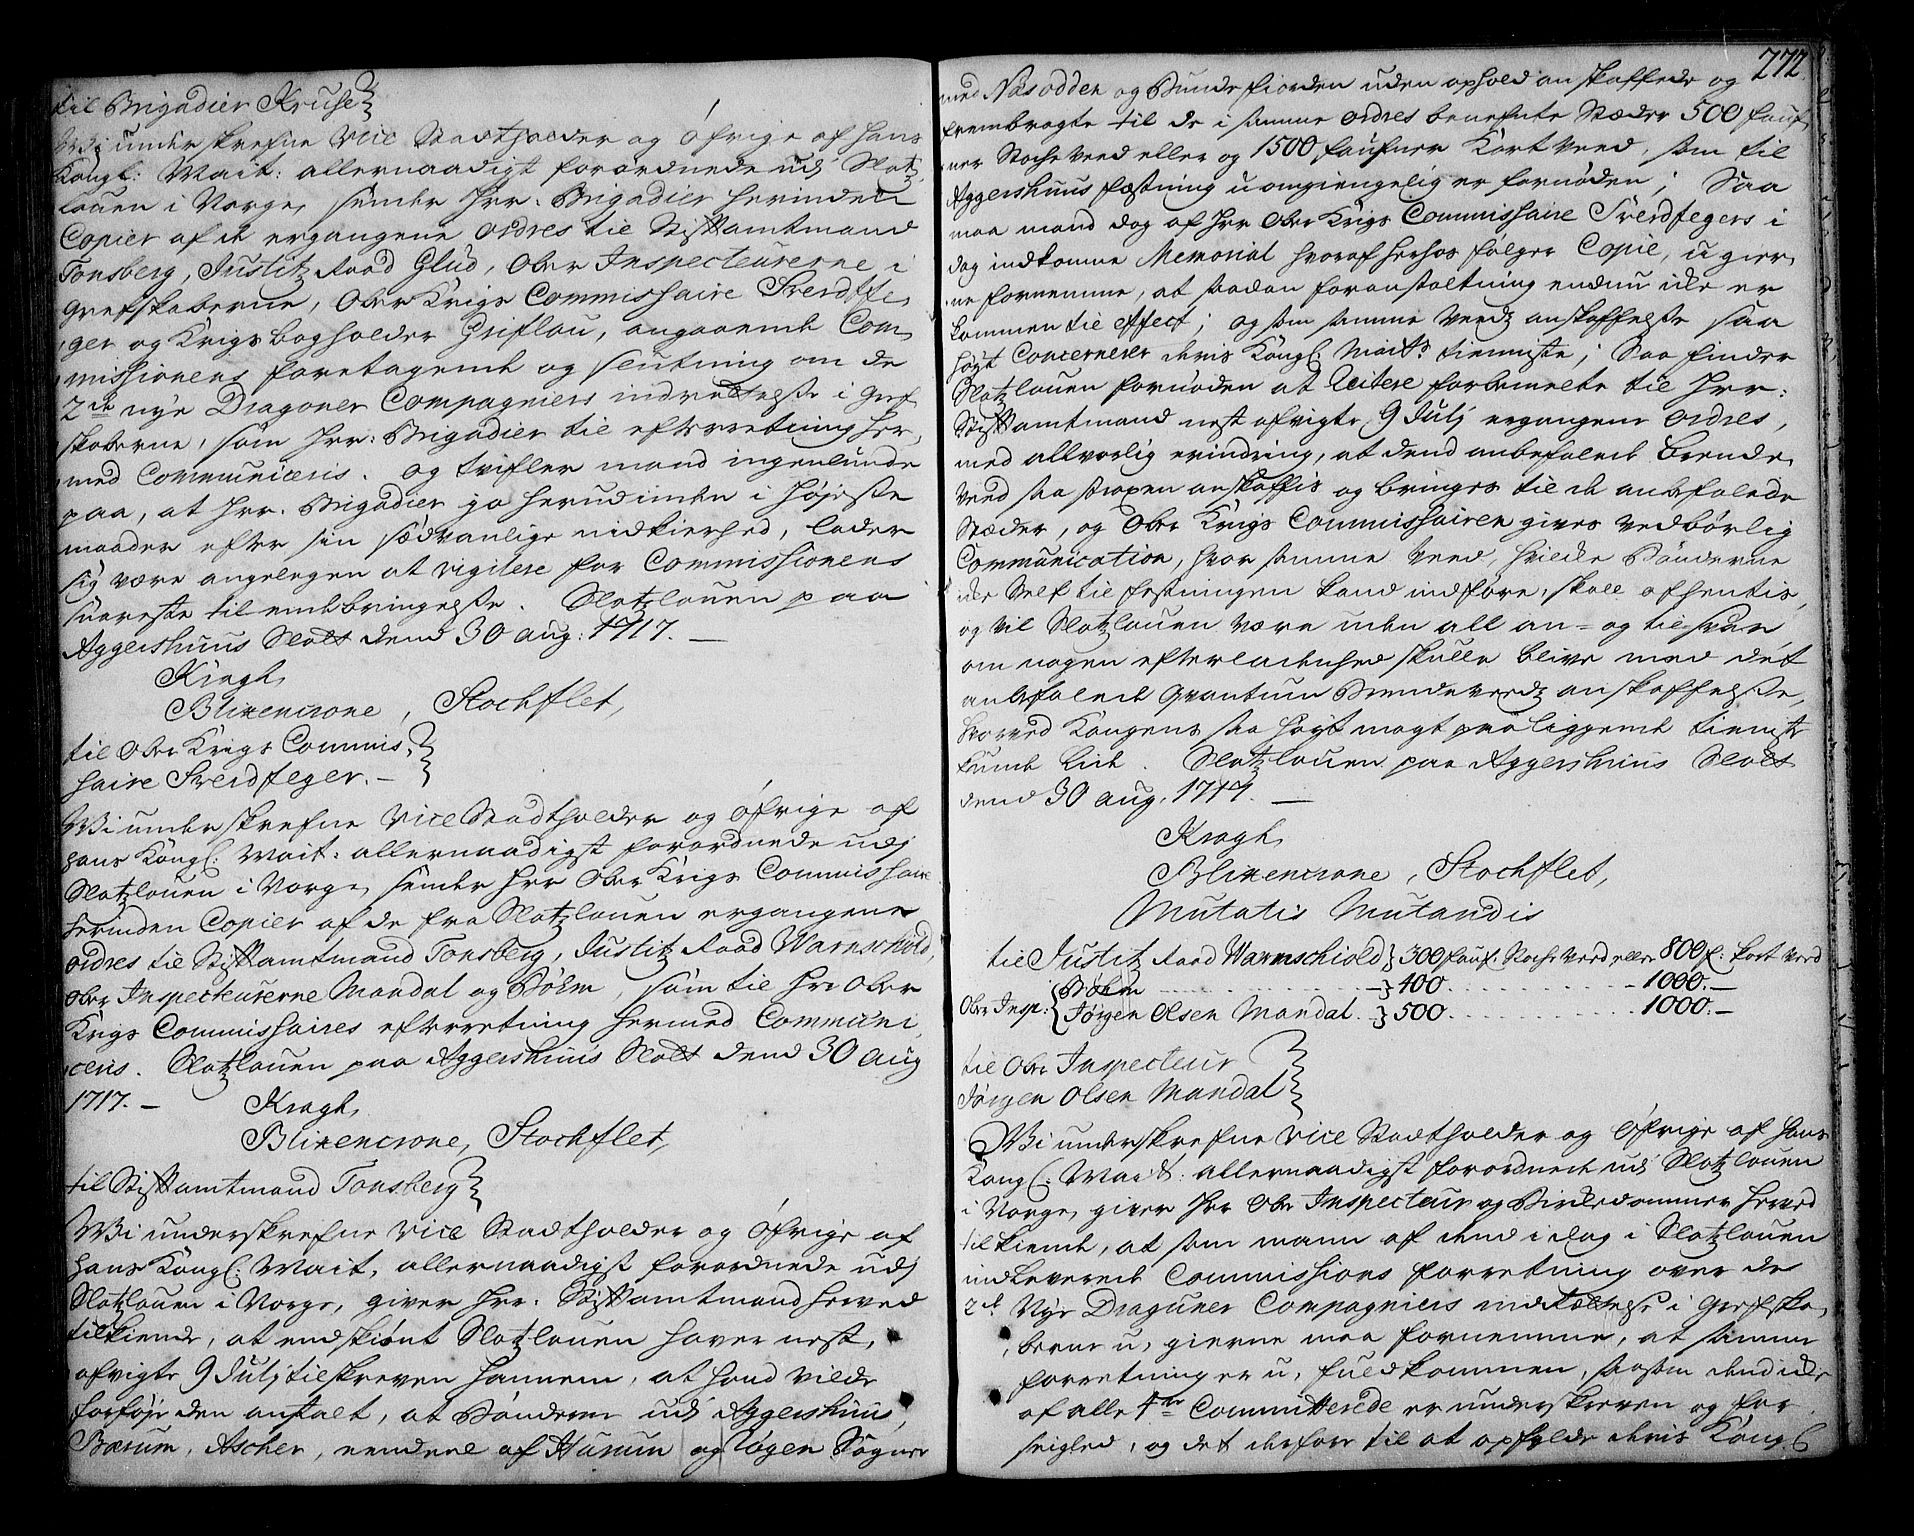 til Brigadier Kruse
Wi underskrefne Vice Stadtholder og Öfrige af Hans
Köngl: Mait: allernaadigst forordnede udj Slotz
louen i Norge, sender Hrr: Brigadier herinden
Copier af de ergangene ordres til Stiftamtmand
Tonsberg, Justitz Raad Glud, Ober Inspecteurerne i
grefskaberne, Ober Krigs Commissaire Sverdtfe
ger og Krigs bogholder Griflou, angaaende Com
missionens foretagende og slutning om de
2de nye Dragoner Compagniers indrettelse i gref
skaberne, som Hrr: Brigadier til efterretning her
med Communiceris. og tvifler mand ingenlunde
paa, at Hrr. Brigadier jo herudinden i Højeste
maader efter sin sædvanlige nidkierhed, lader
sig være angelegen at vigilere for Commissionens
snareste til endebringelse. Slotzlouen paa
Aggershuus Slott dend 30 aug: 1717. —
Kragh,
Blixencrone, Stochflet,
til Ober Krigs Commis
saire Sverdfeger. —
Wi underskrefne Vice Stadtholder og Öfrige af
hans Köngl: Mait: allernaadigst forordnede udj
Slotzlouen i Norge, sender Hrr Ober Krigs Commissaire
herinden Copier af de fra Slotzlouen ergangene
ordres til Stiftamtmand Tonsberg, Justitz Raad Warnschiold,
Ober Inspecteurerne Mandal og Böhm, som til Hrr Ober
Krigs Commissaires efterretning hermed Communi
ceris. Slotzlouen paa Aggershuus Slott dend 30 aug
1717. — Kragh,
Blixencrone, Stochflet,
til Stiftamtmand Tonsberg
Wi underskrefne Vice Stadtholder og Öfrige af
Hans Köngl: Mait, allernaadigst forordnede udj
Slotzlouen i Norge, giver Hrr. Stiftamtmand herved
tilkiende, at endskiönt Slotzlouen haver nest
afvigte 9 Julj tilskreven hannem, at hand vilde
forföje den anstalt, at Bönderne udj Aggershuus,
Bærum, Ascher, nendene af Hurum og Rögen Sogner
272
med Næsodden og Bundefiorden uden ophold anskaffede og
frembragte til de i samme ordres benefnte Stæder 500 fauf
ner Stocke veed eller og 1500 faufner Kort veed, som til
Aggershuus fæstning uomgiengelig er fornöden; Saa
maa mand dog af Hrr Ober Krigs Commissaire Sverdfegers i
dag indkomne Memorial hvoraf herhos fölger Copie, u gier
ne fornemme, at saadan foranstaltning endnu icke er
kommen til effect; og som samme Veedz anskaffelse saa
höyt Concernerer deris Köngl: Maits tienniste; Saa finder
Slotzlouen fornöden at Reitere forbemelte til Hrr:
Stiftamtmand nest afvigte 9 Julj ergangene ordres,
med allvorlig erindring, at dend anbefalede Brende
veed saa straxen anskaffis og bringes til de anbefalede
Stæder, og Ober Krigs Commissairen gives vedbörlig
Communication, hvor samme Veed, hvilcke Bönderne
icke Self til festningen kand indföre, skall afhentis,
og vil Slotzlouen være uden all an- og tilsvar
om nogen efterladenhed skulle blive med det
anbefalede Qvantum Brendeveedz anskaffelse,
hvorved Kongens saa höyt magt paaliggende tieniste
kunde lide. Slotzlouen paa Aggershuus Slott
dend 30 aug. 1717. —
Kragh,
Blixencrone, Stochflet,
Mutatis Mutandis
til Justitz Raad Warnschiold 300 fauf: Stocke Veed eller 800 f: kort Veed
Böhm 400 . . . 1000. —
Ober Insp: Jörgen Olsen Mandal. 500 . . . 1000. —
til Ober Inspecteur
Jörgen Olsen Mandal
Wi underskrefne Vice Stadtholder og Öfrige af Hans
Köngl: Mait: allernaadigst forordnede udj Slotzlouen
i Norge, giver Hrr Ober Inspecteur og Birckedommer herved
tilkiende, at som mann af dend i dag i Slotzlouen
indleverede Commissions forretning over de
2de Nye Draguner Compagniers indrettelse i Grefska
berne u, gierne maa fornemme, at samme
forretning er u, fuldkommen, saasom dend icke
af alle 4re Committerede er underskreven og for
seigled, og det derfor til at opfylde deris Köngl: